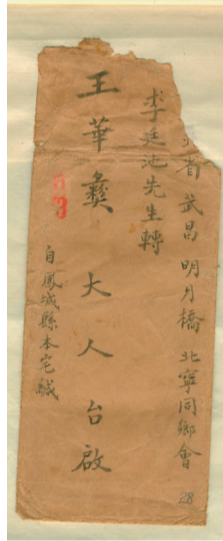 北省 武昌 明月橋 北寧同鄉會 28
李廷池先生轉
王華彝 大人 台啟
自鳳城縣本宅緘